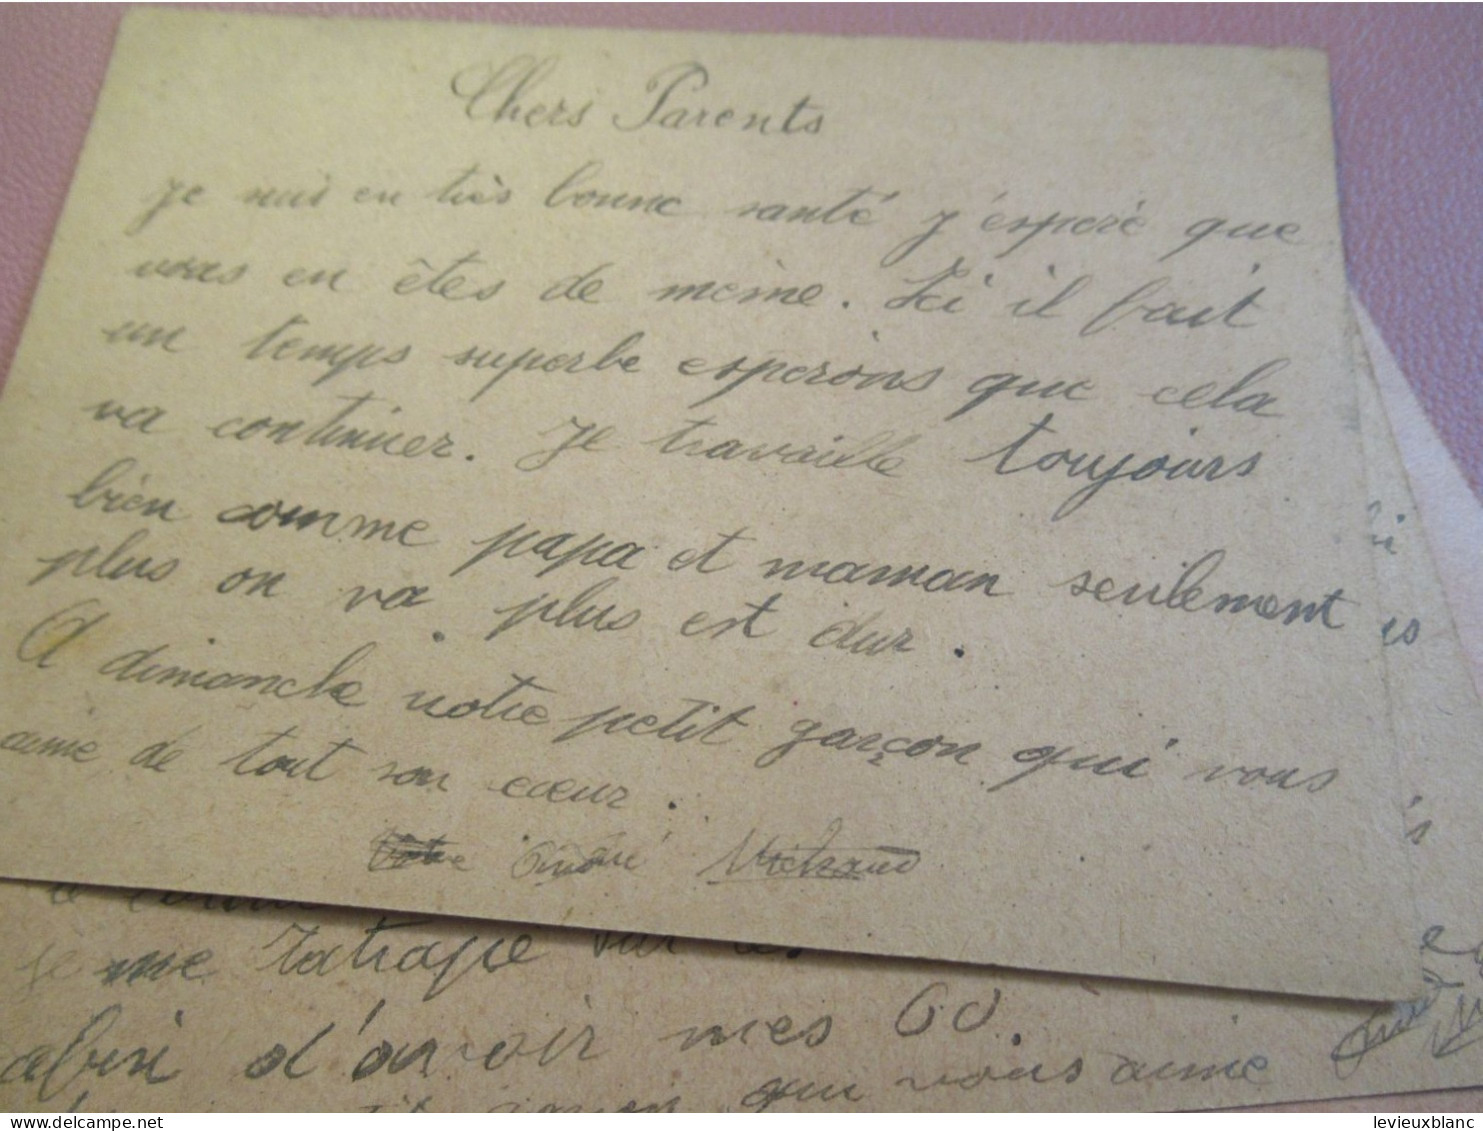 Chers Parents
je suis en très bonne santé j'espère que
vous en êtes de même. Ici il fait
un temps superbe esperons que cela
va continuer. Je travaille toujours
bien comme papa et maman seulement
plus on va, plus est dur.
A dimanche votre petit garçon qui vous
aime de tout son cœur.
Votre André
je me ratrape sur les
afin d'avoir mes 60.
qui vous aime
levieuxblanc